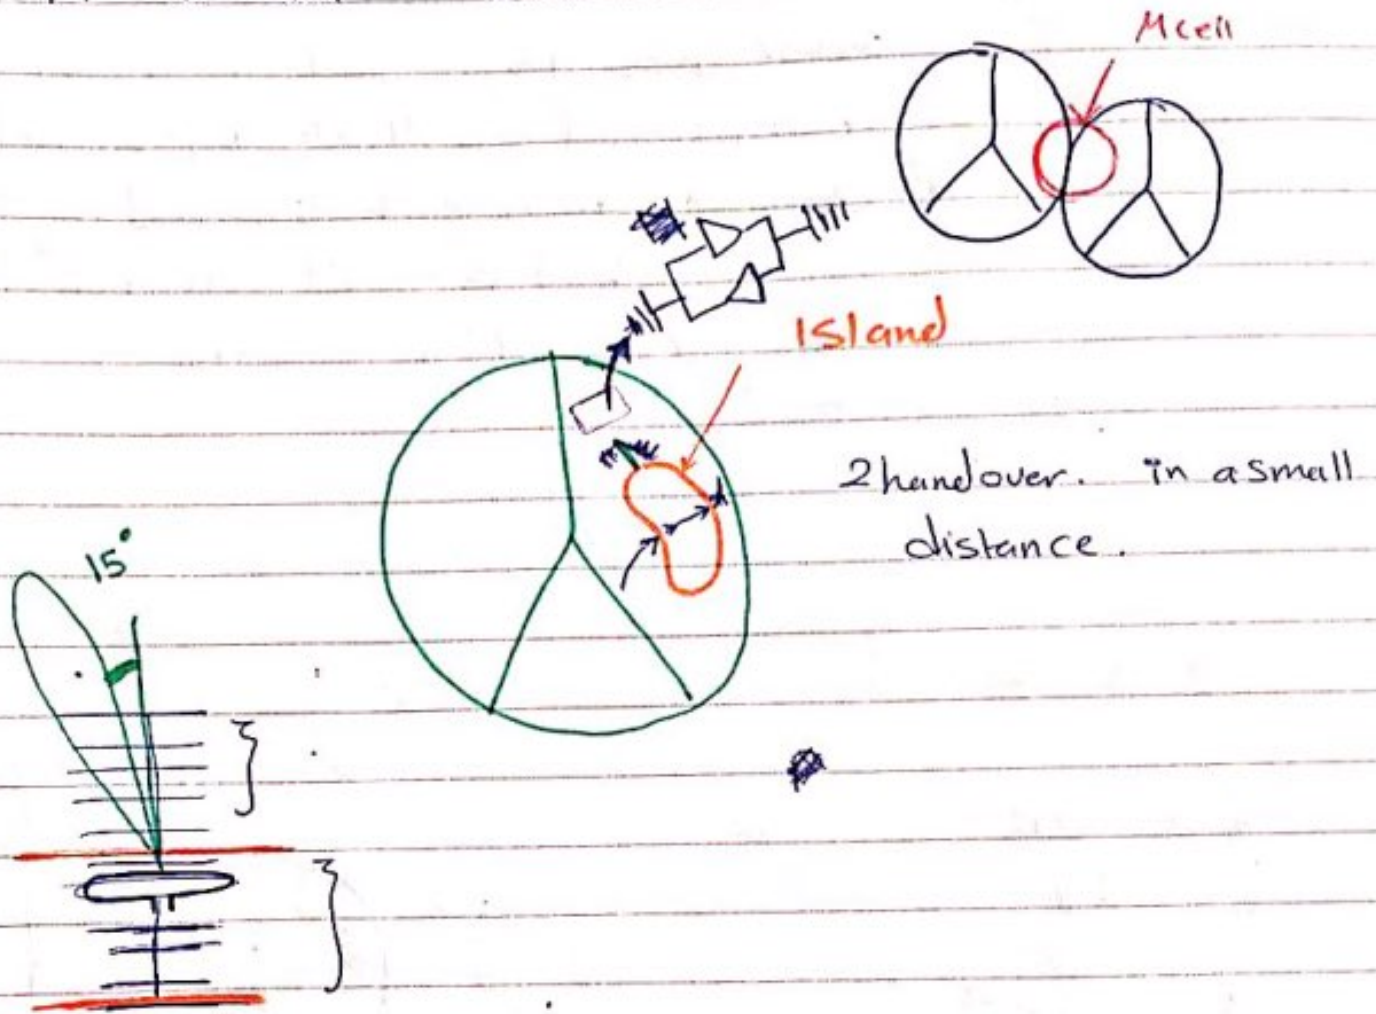 Mcell
Island
2 handover. in a small
distance.
15°